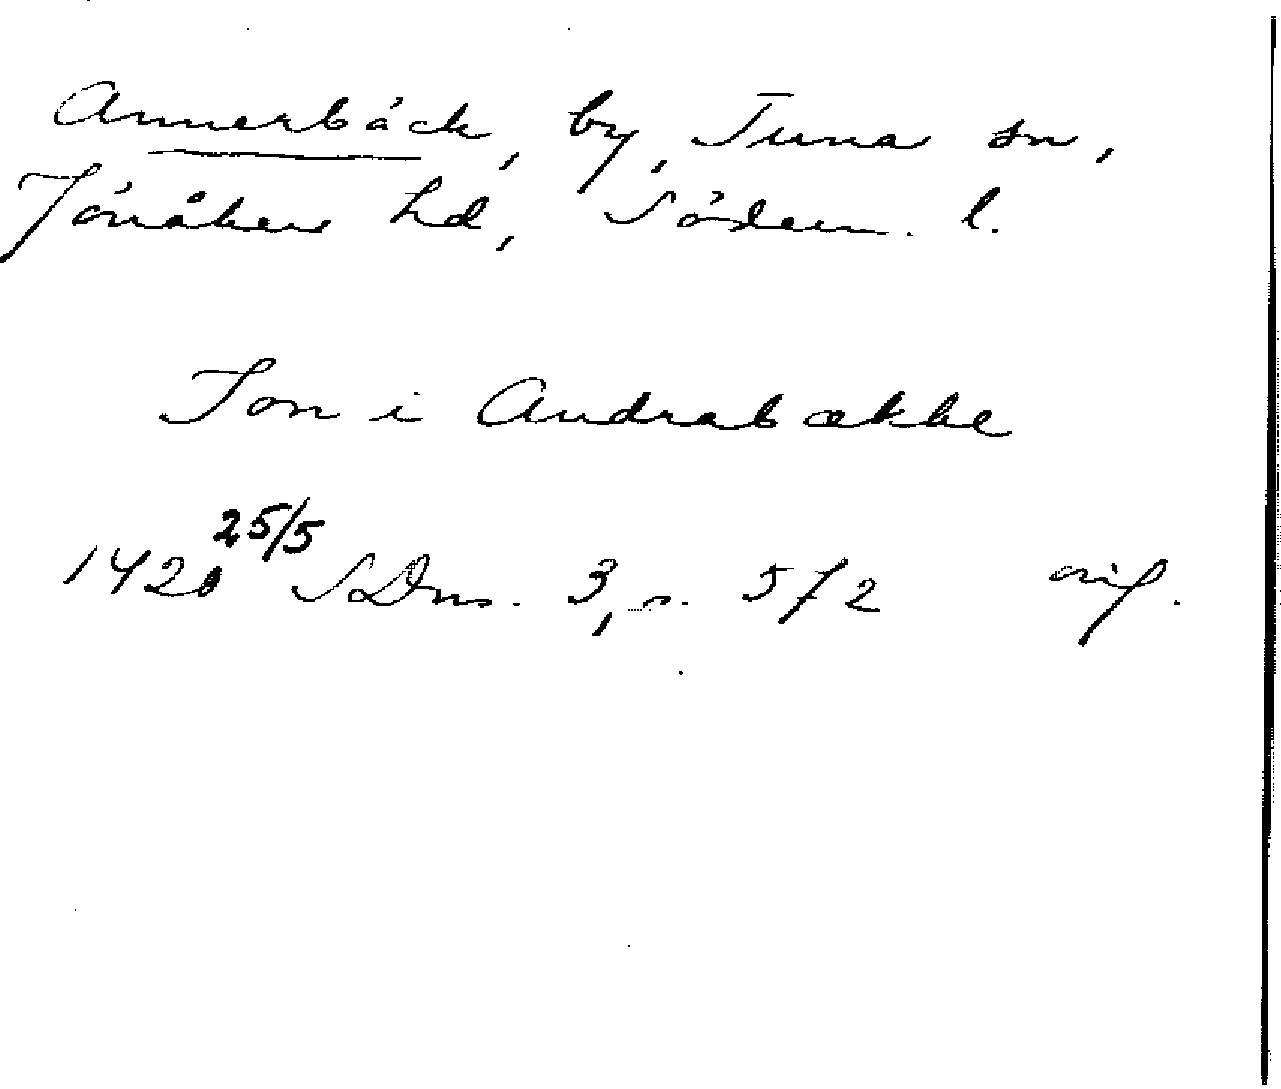 Annerbäck, by, Tuna sn,
Jönåkers hd, Söderm. l.
Jon i Andrabække
1420 25/5 SDns. 3, s. 572 orig.